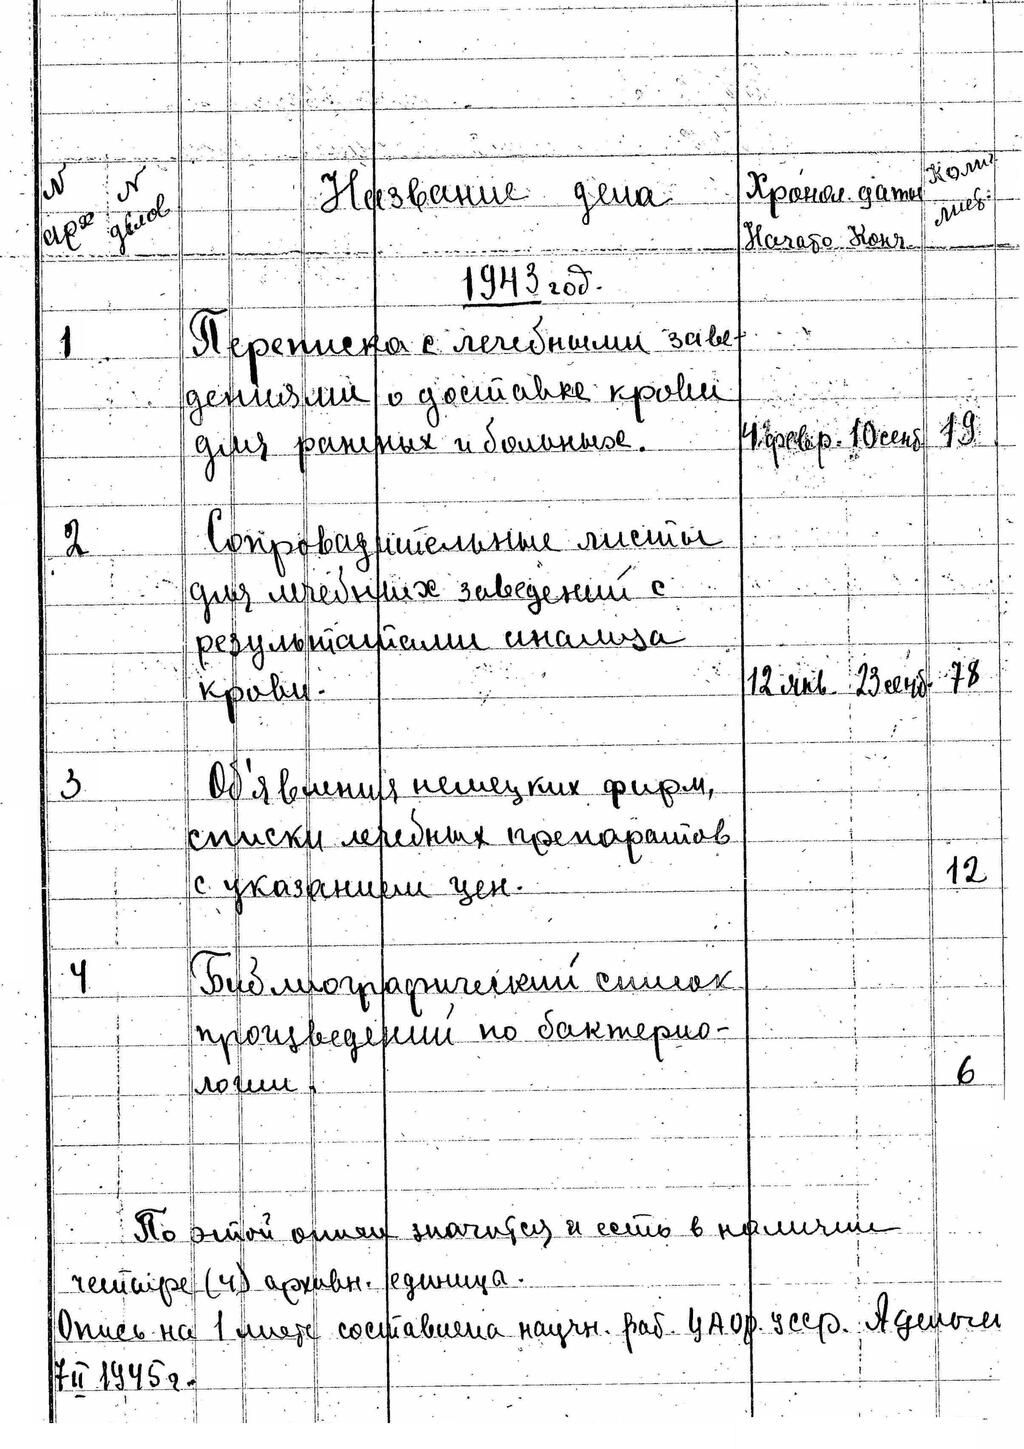 N арх N делов Название дела Хронол. даты Колич лист.
Начато Конч.
1943 год.
1 Переписка с лечебными заве-
дениями о доставке крови
для раненых и больных. 4 февр. 10 сент 19
2 Сопроводительные листы
для лечебных заведений с
результатами анализа
крови. 12 янв. 23 сент. 78
3 Об'явления немецких фирм,
списки лечебных препаратов
с указанием цен. 12
4 Библиографический список
произведений по бактерио-
логии. 6
По этой описи значится и есть в наличии
четыре (4) архивн. единица.
Опись на 1 листе составлена научн. раб. ЦАОР. УССР.
7 II 1945 г.